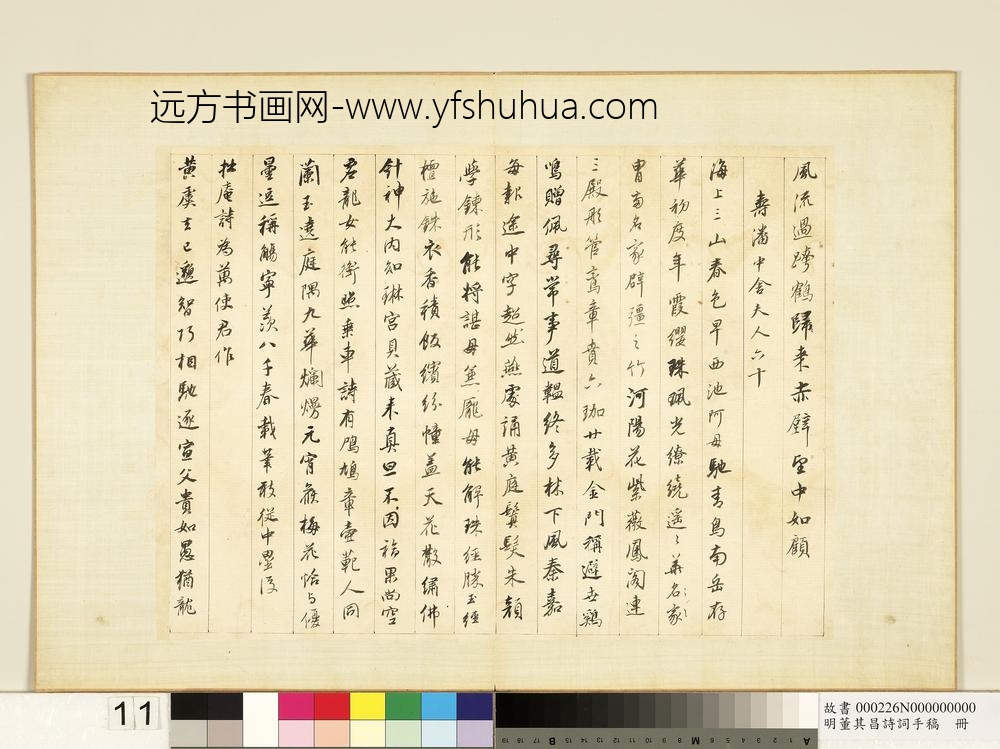 远方书画网-www.yfshuhua.com
風流過跨鶴歸来赤壁空中如顧
壽潘中舍夫人六十
海上三山春色早西池阿母馳青鳥南岳存
華初度年霞纓珠珮光繚繞遥〻華名家
胄南名家辟疆之竹河陽花紫薇鳳閣連
三殿彤管鸞章賁六珈廿載金門稱避世鷄
鳴贈佩尋常事道韞終多林下風秦嘉
每報途中字超然燕處誦黄庭鬒髮朱顏
學錬形能將諶母魚龐母能解珠經勝玉經
檀施銖衣香積飯繽紛幢蓋天花散繡佛
針神大内知琳宮貝藏来真旦不因福果尚空
君龍女能銜照乗車詩有鳲鳩章壺範人同
蘭玉遶庭隅九華爛熳元宵候梅花恰与優
曇逗稱觴寧羡八千春載筆敢従中壘後
拙庵詩為萬使君作
黄虞去已邈智巧相馳逐宣父貴如愚猶龍
11
故書 000226N000000000
明董其昌詩詞手稿 冊